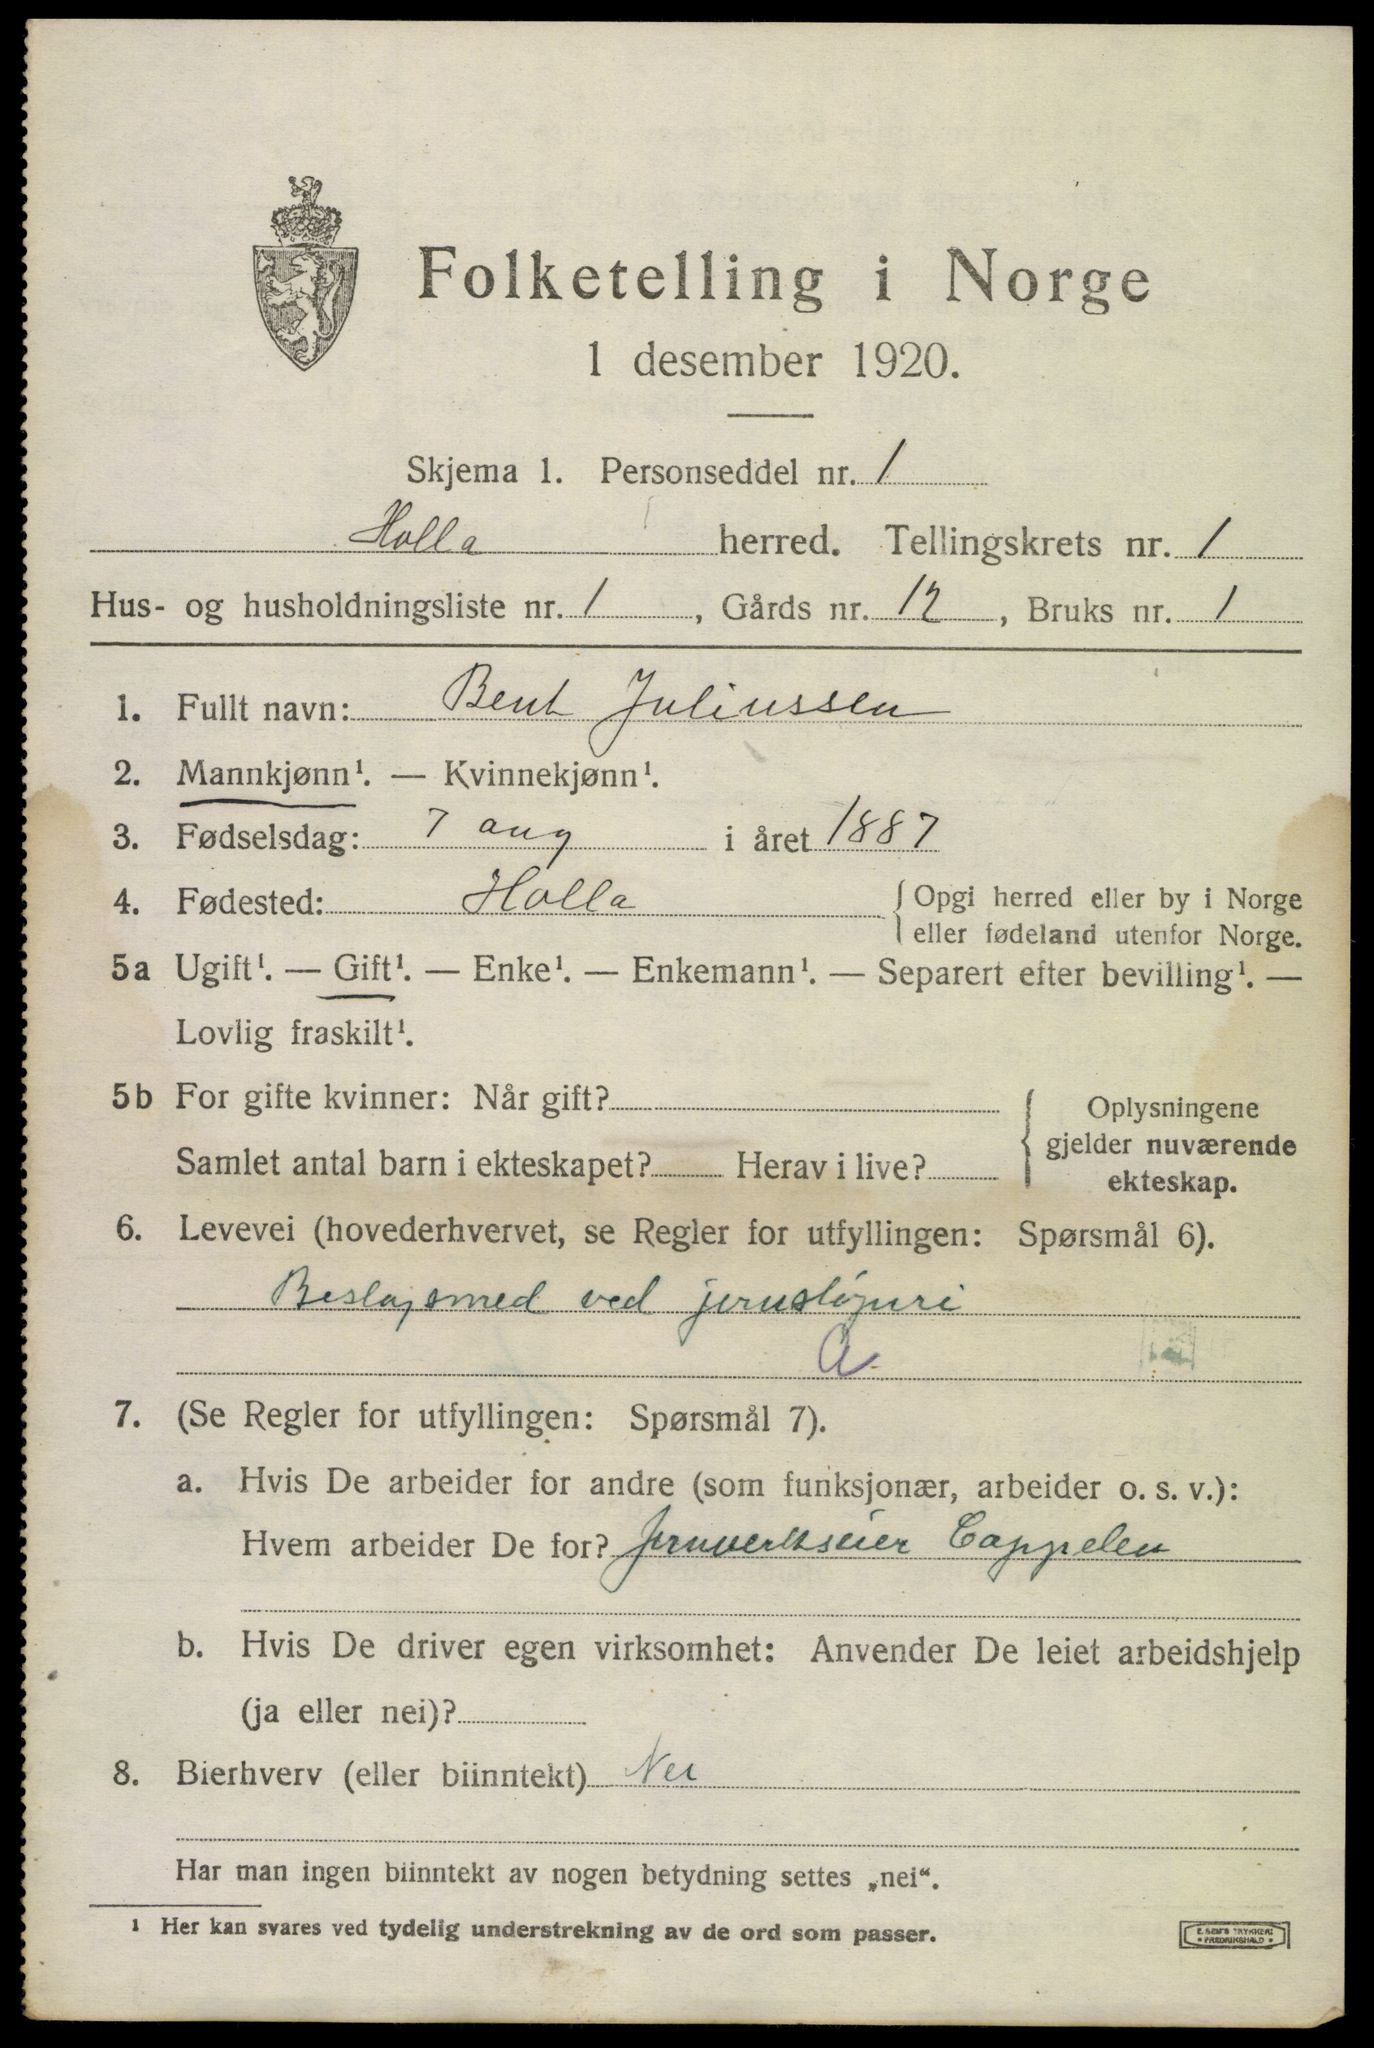 Folketelling i Norge
1 desember 1920.
Skjema 1. Personseddel nr. 1
Holla herred. Tellingskrets nr. 1
Hus- og husholdningsliste nr. 1, Gårds nr. 12, Bruks nr. 1
1. Fullt navn: Bent Juliussen
2. Mannkjønn¹. — Kvinnekjønn¹.
3. Fødselsdag: 7 aug i året 1887
4. Fødested: Holla { Opgi herred eller by i Norge
eller fødeland utenfor Norge.
5a Ugift¹. — Gift¹. — Enke¹. — Enkemann¹. — Separert efter bevilling¹. —
Lovlig fraskilt¹.
5b For gifte kvinner: Når gift?
Samlet antal barn i ekteskapet? Herav i live?
Oplysningene
gjelder nuværende
ekteskap.
6. Levevei (hovederhvervet, se Regler for utfyllingen: Spørsmål 6).
Beslagsmed ved jernstøperi
A.
7. (Se Regler for utfyllingen: Spørsmål 7).
a. Hvis De arbeider for andre (som funksjonær, arbeider o. s. v.):
Hvem arbeider De for? Jernverkseier Cappelen
b. Hvis De driver egen virksomhet: Anvender De leiet arbeidshjelp
(ja eller nei)?
8. Bierhverv (eller biinntekt) Nei
Har man ingen biinntekt av nogen betydning settes „nei“.
¹ Her kan svares ved tydelig understrekning av de ord som passer.
E. SEM'S TRYKKERI
• FREDRIKSHALD •